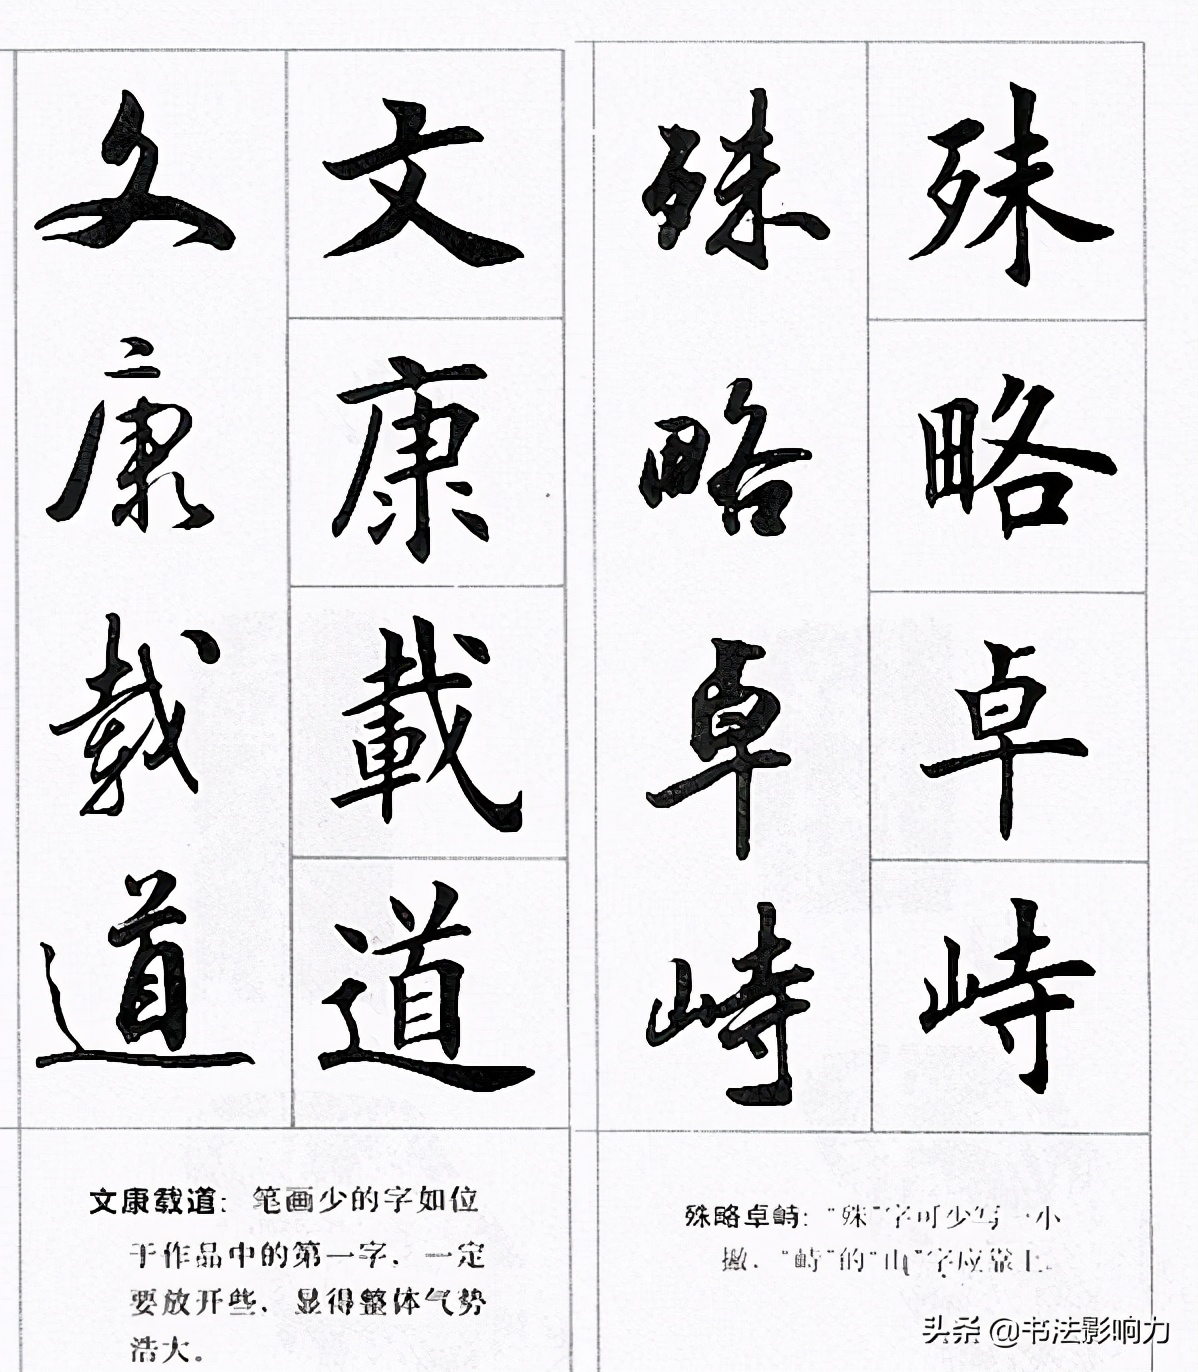 文康載道
文康載道
殊略卓峙
殊略卓峙
文康载道：笔画少的字如位
于作品中的第一字，一定
要放开些，显得整体气势
浩大。
殊略卓峙：“殊”字可少写一小
撇，“峙”的“山”字应靠上。
头条 @书法影响力